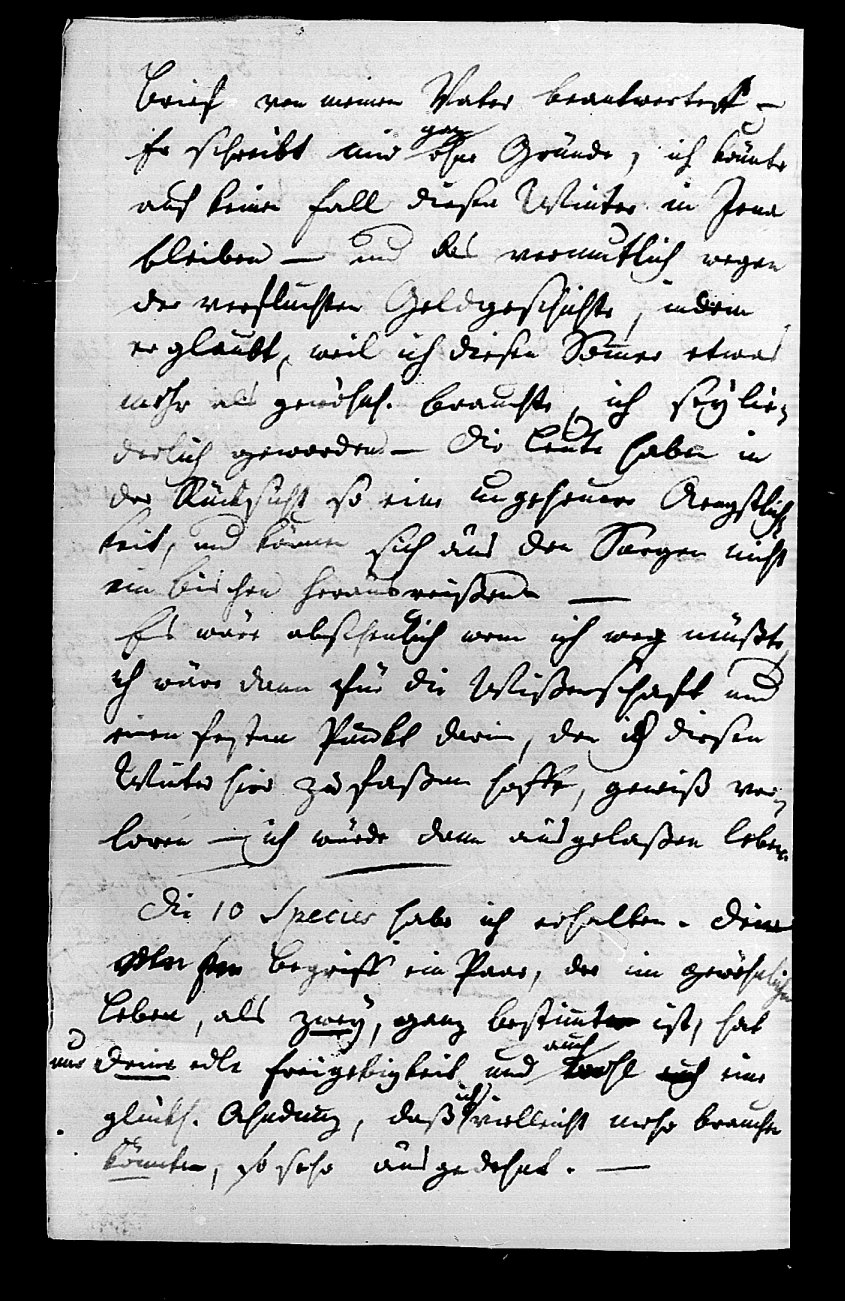 Brief von meinen Vater beantwortest —
Er schreibt mir gar ohne Gründe, ich könnte
auf keinen Fall diesen Winter in Jena
bleiben — und das vermutlich wegen
der verfluchten Geldgeschichte, indem
er glaubt, weil ich diesen Som̅er etwas
mehr als gewöhnl. brauchte, ich sey lie-
derlich geworden — Die Leute haben in
der Rücksicht so eine ungeheure Aengstlich-
keit, und können sich aus den Sorgen nicht
ein bischen herausreißen —
Es wäre abscheulich wenn ich weg müßte,
ich wäre dann für die Wißenschaft und
einen festen Punkt darin, den ich diesen
Winter hier zu faßen hoffte, gewiß ver-
loren — ich würde dann ausgelaßen leben.
Die 10 Species habe ich erhalten. Den
Begriff ein Paar, der im gewöhnlichen
Leben, als zwey, ganz bestim̅t ist, hat
nur Deine edle Freigebigkeit und auch wohl eine
glückl. Ahndung, daß ich vielleicht mehr brauchen
könnte, so sehr ausgedehnt. —